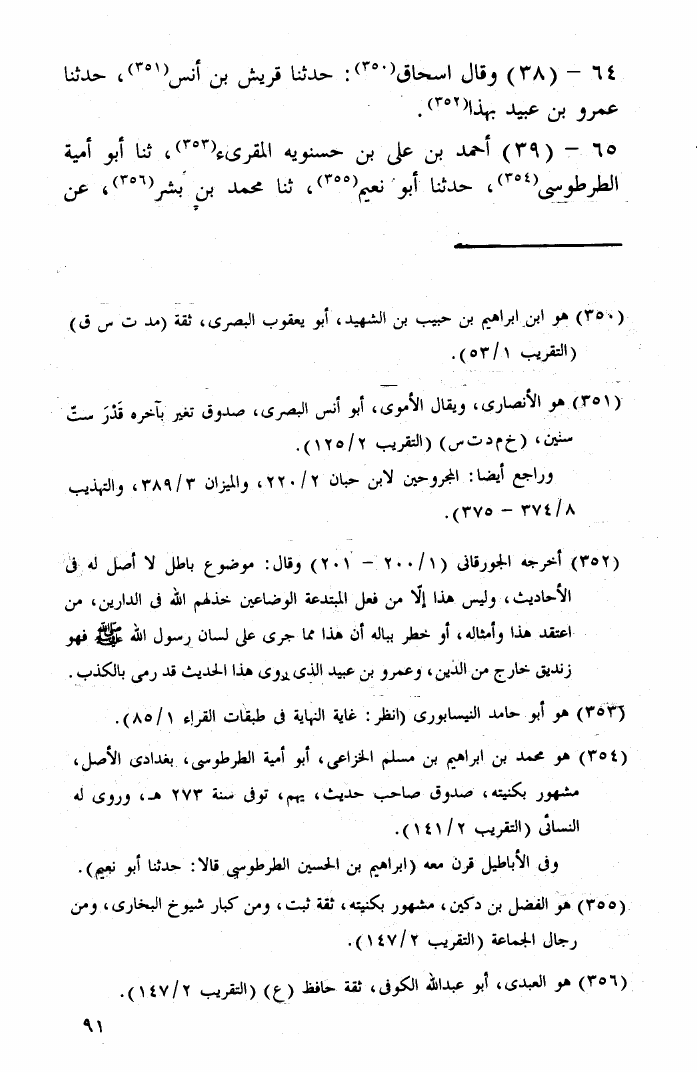 ٦٤ – (٣٨) وقال اسحاق(٣٥٠): حدثنا قريش بن أنس(٣٥١)، حدثنا
عمرو بن عبيد بهذا(٣٥٢).
٦٥ – (٣٩) أحمد بن على بن حسنويه المقرىء(٣٥٣)، ثنا أبو أمية
الطرطوسى(٣٥٤)، حدثنا أبو نعيم(٣٥٥)، ثنا محمد بن بشر(٣٥٦)، عن
(٣٥٠) هو ابن ابراهيم بن حبيب بن الشهيد، أبو يعقوب البصرى، ثقة (مد ت س ق)
(التقريب ٥٣/١).
(٣٥١) هو الأنصارى، ويقال الأموى، أبو أنس البصرى، صدوق تغير بآخره قَدْرَ ستّ
سنين، (خ م د ت س) (التقريب ١٢٥/٢).
وراجع أيضا: المجروحين لابن حبان ٢٢٠/٢، والميزان ٣٨٩/٣، والتهذيب
٣٧٤/٨ – ٣٧٥).
(٣٥٢) أخرجه الجورقانى (٢٠٠/١ – ٢٠١) وقال: موضوع باطل لا أصل له فى
الأحاديث، وليس هذا إلّا من فعل المبتدعة الوضاعين خذلهم الله فى الدارين، من
اعتقد هذا وأمثاله، أو خطر بباله أن هذا مما جرى على لسان رسول الله ﷺ فهو
زنديق خارج من الدين، وعمرو بن عبيد الذى يروى هذا الحديث قد رمى بالكذب.
(٣٥٣) هو أبو حامد النيسابورى (انظر: غاية النهاية فى طبقات القراء ٨٥/١).
(٣٥٤) هو محمد بن ابراهيم بن مسلم الخزاعى، أبو أمية الطرطوسى، بغدادى الأصل،
مشهور بكنيته، صدوق صاحب حديث، يهم، توفى سنة ٢٧٣ هـ، وروى له
النسائى (التقريب ١٤١/٢).
وفى الأباطيل قرن معه (ابراهيم بن الحسين الطرطوسى قالا: حدثنا أبو نعيم).
(٣٥٥) هو الفضل بن دكين، مشهور بكنيته، ثقة ثبت، ومن كبار شيوخ البخارى، ومن
رجال الجماعة (التقريب ١٤٧/٢).
(٣٥٦) هو العبدى، أبو عبدالله الكوفى، ثقة حافظ (ع) (التقريب ١٤٧/٢).
٩١